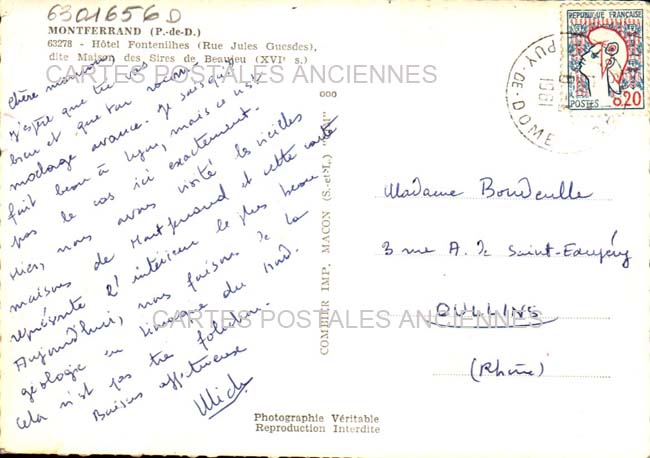 6301656D
MONTFERRAND (P.-de-D.)
63278 - Hôtel Fontenilhes (Rue Jules Guesdes),
dite Maison des Sires de Beaujeu (XVIᵉ s.)
CARTES POSTALES ANCIENNES
Chère maman
J'espère que tu vas
bien et que ton
modage avance. Je sais qu'il
fait beau à Lyon, mais ce n'est
pas le cas ici exactement.
Hier, nous avons visité les vieilles
maisons de Montferrand et cette carte
représente l'intérieur le plus beau.
Aujourd'hui, nous faisons de la
géologie en Limagne du Nord.
Cela n'est pas très folichon.
Baisers affectueux
Mich
COMBIER IMP. MACON (S.-et-L.) "CIM"
RÉPUBLIQUE FRANÇAISE
0,20
POSTES
PUY-DE-DOME
Madame Bourdeulle
3 rue A. de Saint-Exupéry
OULLINS
(Rhône)
CARTES POSTALES ANCIENNES
Photographie Véritable
Reproduction Interdite